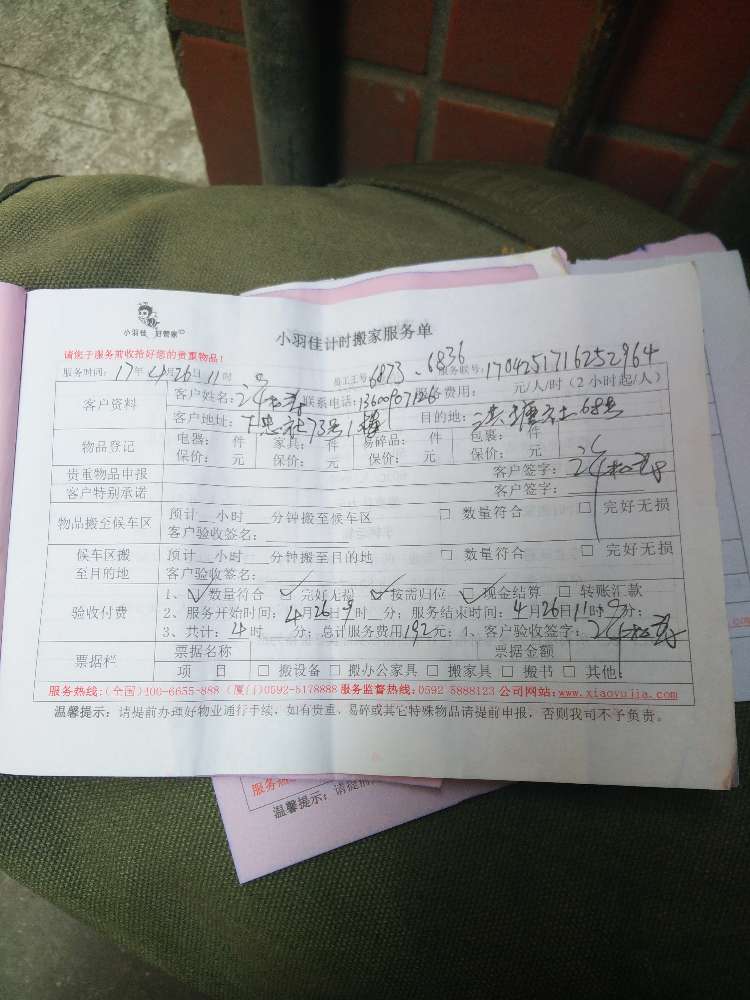 小羽佳 好管家
小羽佳计时搬家服务单
请您于服务前收拾好您的贵重物品!
服务时间: 17年4月26日11时 员工工号: 6873、6836 服务账号: 1704251716252964
客户资料 客户姓名: 联系电话: 服务费用: 元/人/时(2小时起/人)
客户地址: 下忠社73号1楼 目的地: 68号
物品登记 电器: 件 家具: 件 易碎品: 件 包裹: 件
保价: 元 保价: 元 保价: 元 保价: 元
贵重物品申报 客户签字:
客户特别承诺 客户签字:
物品搬至候车区 预计__小时___分钟搬至候车区 □ 数量符合 □ 完好无损
客户验收签名:
候车区搬至目的地 预计__小时___分钟搬至目的地 □ 数量符合 □ 完好无损
客户验收签名:
验收付费 1、☑数量符合 ☑完好无损 ☑按需归位 ☑现金结算 □ 转账汇款
2、服务开始时间: 4月26日9时__分; 服务结束时间: 4月26日11时 分;
3、共计: 4时 分; 总计服务费用192元; 1、客户验收签字:
票据栏 票据名称 票据金额
项 目 □ 搬设备 □ 搬办公家具 □ 搬家具 □ 搬书 □ 其他:
服务热线:(全国)400-6655-888 (厦门)0592-5178888 服务监督热线:0592 5888123 公司网站:www.xiaoyujia.com
温馨提示: 请提前办理好物业通行手续, 如有贵重、易碎或其它特殊物品请提前申报, 否则我司不予负责。
服务热
温馨提示: 请提前